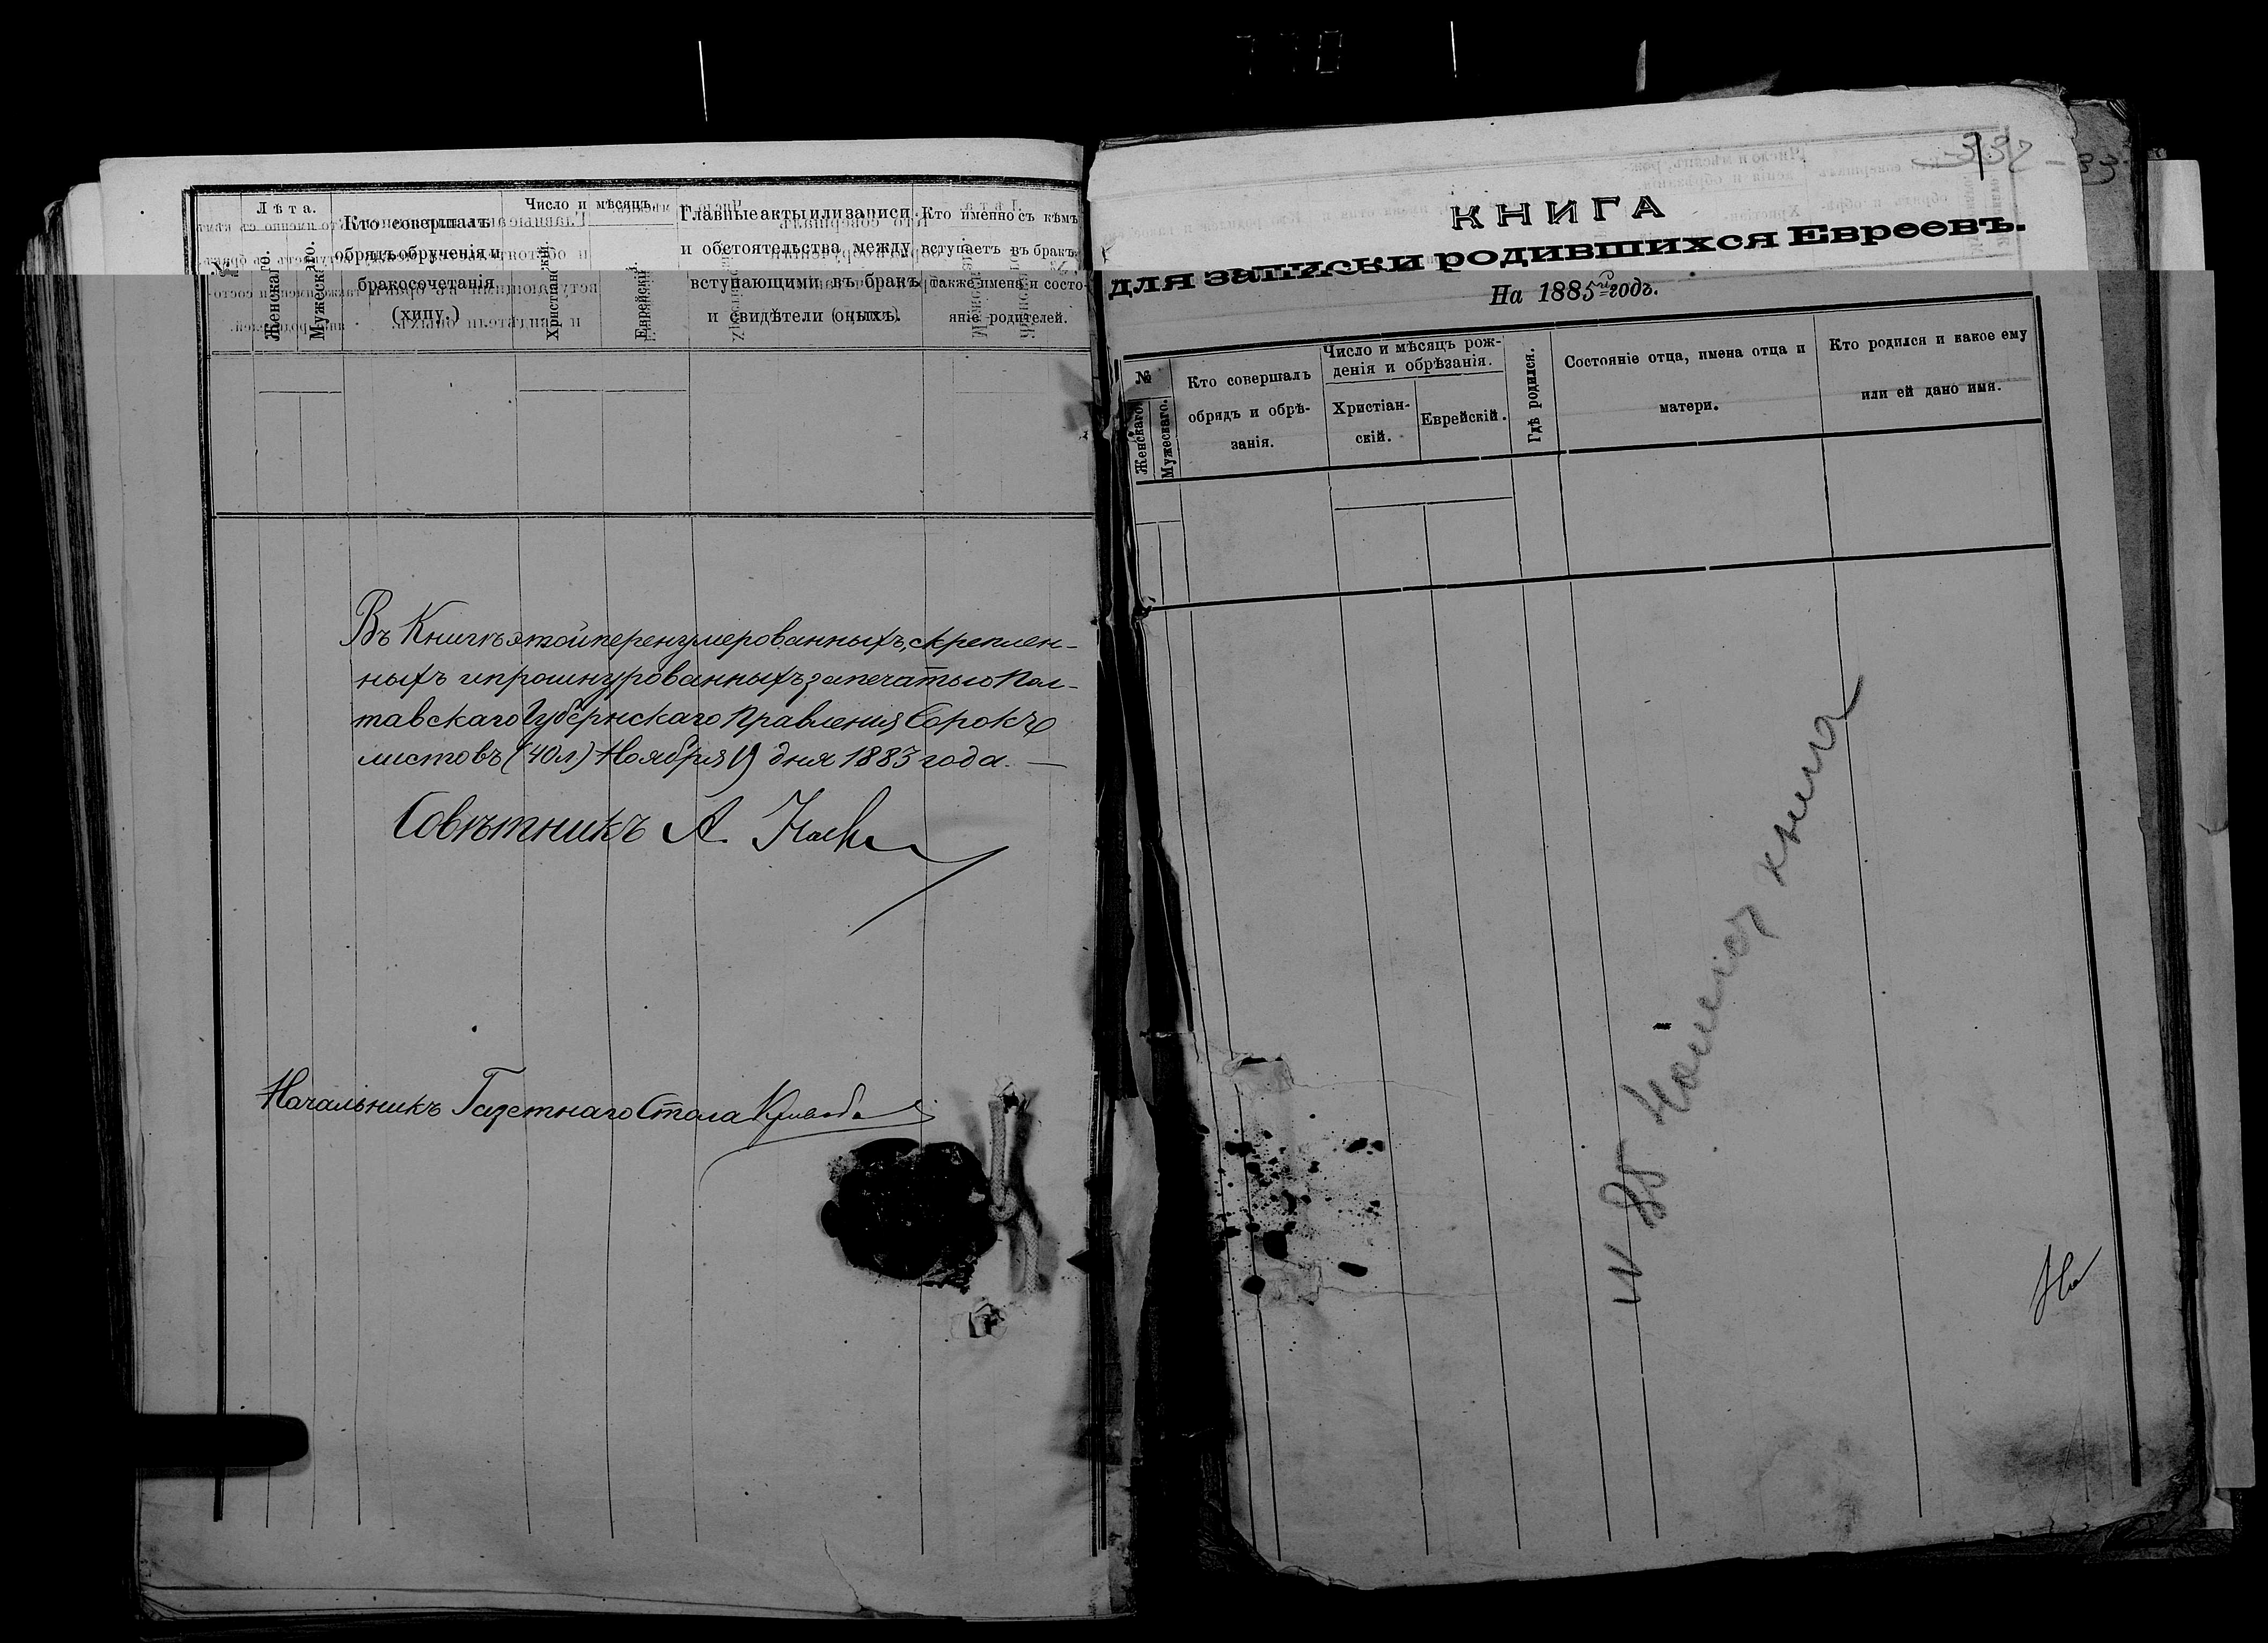 Лѣта.
Женскаго.
Мужескаго.
Кто совершалъ
обрядъ обрученія и
бракосочетанія
(хипу.)
Число и мѣсяцъ
Христіанскій.
Еврейскій.
Главные акты или записи
и обстоятельства между
вступающими въ бракъ
и свидѣтели оныхъ.
Кто именно съ кѣмъ
вступаетъ въ бракъ,
также имена и состо-
яніе родителей.
Въ Книгѣ этой перенумерованныхъ, скреплен-
ныхъ и прошнурованныхъ за печатью Пол-
тавскаго Губернскаго Правленія Сорокъ
листовъ (40 л) Ноября 19 дня 1883 года. —
Совѣтникъ А.
Начальникъ Газетнаго Стола
332
КНИГА
для записки родившихся Евреевъ.
На 1885й годъ.
№
Женскаго.
Мужескаго.
Кто совершалъ
обрядъ и обрѣ-
занія.
Число и мѣсяцъ рож-
денія и обрѣзанія.
Христіан-
скій.
Еврейскій.
Гдѣ родился.
Состояніе отца, имена отца и
матери.
Кто родился и какое ему
или ей дано имя.
книга